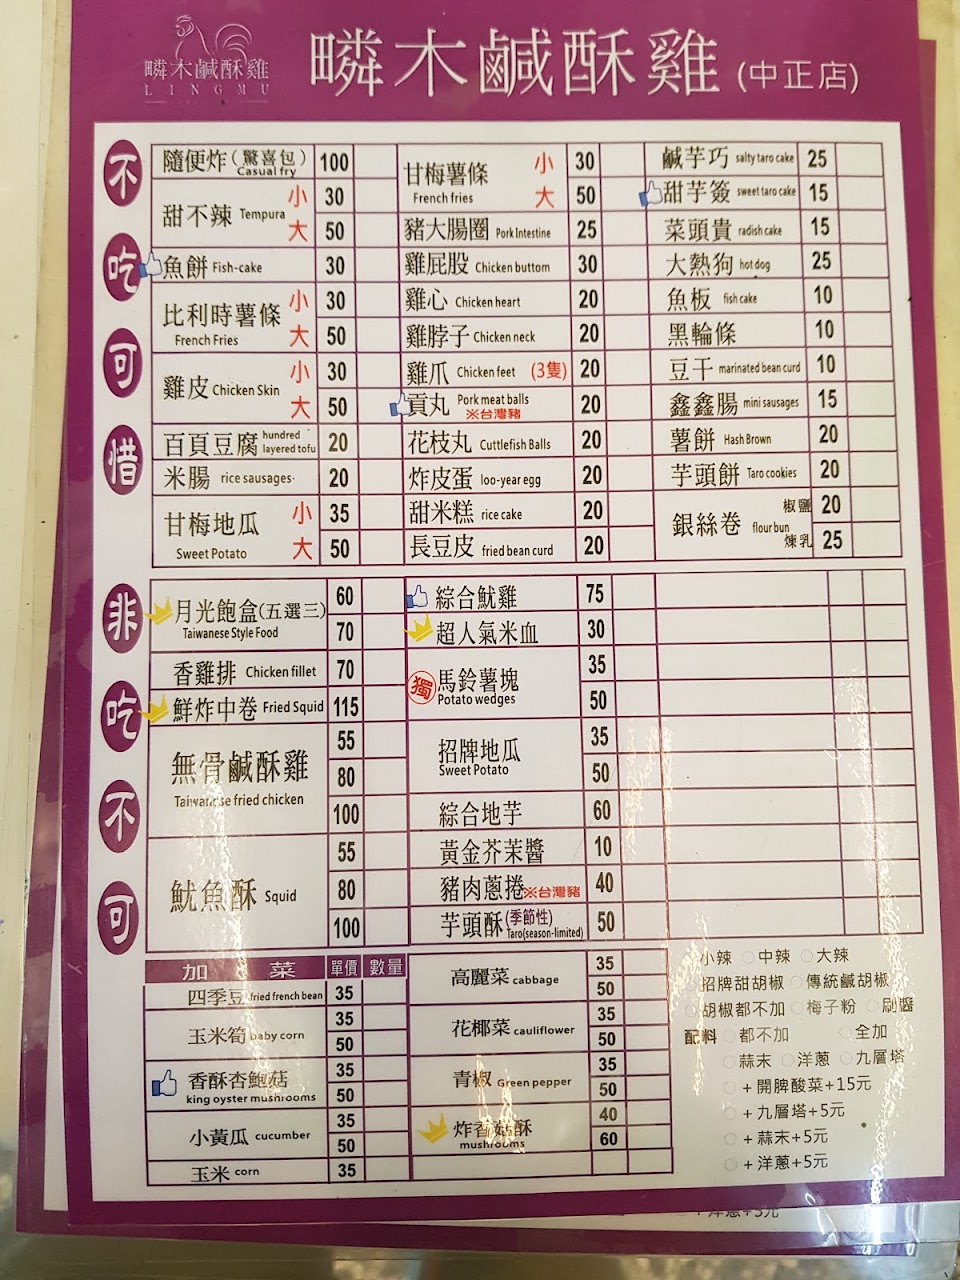 疄木鹹酥雞
LINGMU
疄木鹹酥雞(中正店)
不吃可惜
隨便炸(驚喜包) 100
Casual fry
甜不辣 Tempura 小 30
大 50
魚餅 Fish-cake 30
比利時薯條 小 30
French Fries 大 50
雞皮 Chicken Skin 小 30
大 50
百頁豆腐 hundred layered tofu 20
米腸 rice sausages· 20
甘梅地瓜 小 35
Sweet Potato 大 50
甘梅薯條 小 30
French fries 大 50
豬大腸圈 Pork Intestine 25
雞屁股 Chicken buttom 30
雞心 Chicken heart 20
雞脖子 Chicken neck 20
雞爪 Chicken feet (3隻) 20
貢丸 Pork meat balls 20
※台灣豬
花枝丸 Cuttlefish Balls 20
炸皮蛋 loo-year egg 20
甜米糕 rice cake 20
長豆皮 fried bean curd 20
鹹芋巧 salty taro cake 25
甜芋簽 sweet taro cake 15
菜頭貴 radish cake 15
大熱狗 hot dog 25
魚板 fish cake 10
黑輪條 10
豆干 marinated bean curd 10
鑫鑫腸 mini sausages 15
薯餅 Hash Brown 20
芋頭餅 Taro cookies 20
銀絲卷 flour bun 椒鹽 20
煉乳 25
非吃不可
月光飽盒(五選三) 60
Taiwanese Style Food 70
香雞排 Chicken fillet 70
鮮炸中卷 Fried Squid 115
無骨鹹酥雞 55
80
Taiwanese fried chicken 100
魷魚酥 Squid 55
80
100
綜合魷雞 75
超人氣米血 30
獨 馬鈴薯塊 35
Potato wedges 50
招牌地瓜 35
Sweet Potato 50
綜合地芋 60
黃金芥茉醬 10
豬肉蔥捲※台灣豬 40
芋頭酥(季節性) 50
Taro(season-limited)
加菜 單價 數量
四季豆 fried french bean 35
玉米筍 baby corn 35
50
香酥杏鮑菇 35
king oyster mushrooms 50
小黃瓜 cucumber 35
50
玉米 corn 35
高麗菜 cabbage 35
50
花椰菜 cauliflower 35
50
青椒 Green pepper 35
50
炸香菇酥 40
mushrooms 60
小辣 中辣 大辣
招牌甜胡椒 傳統鹹胡椒
胡椒都不加 梅子粉 刷醬
配料 都不加 全加
蒜末 洋蔥 九層塔
+開脾酸菜+15元
+九層塔+5元
+蒜末+5元
+洋蔥+5元
+洋蔥+5元